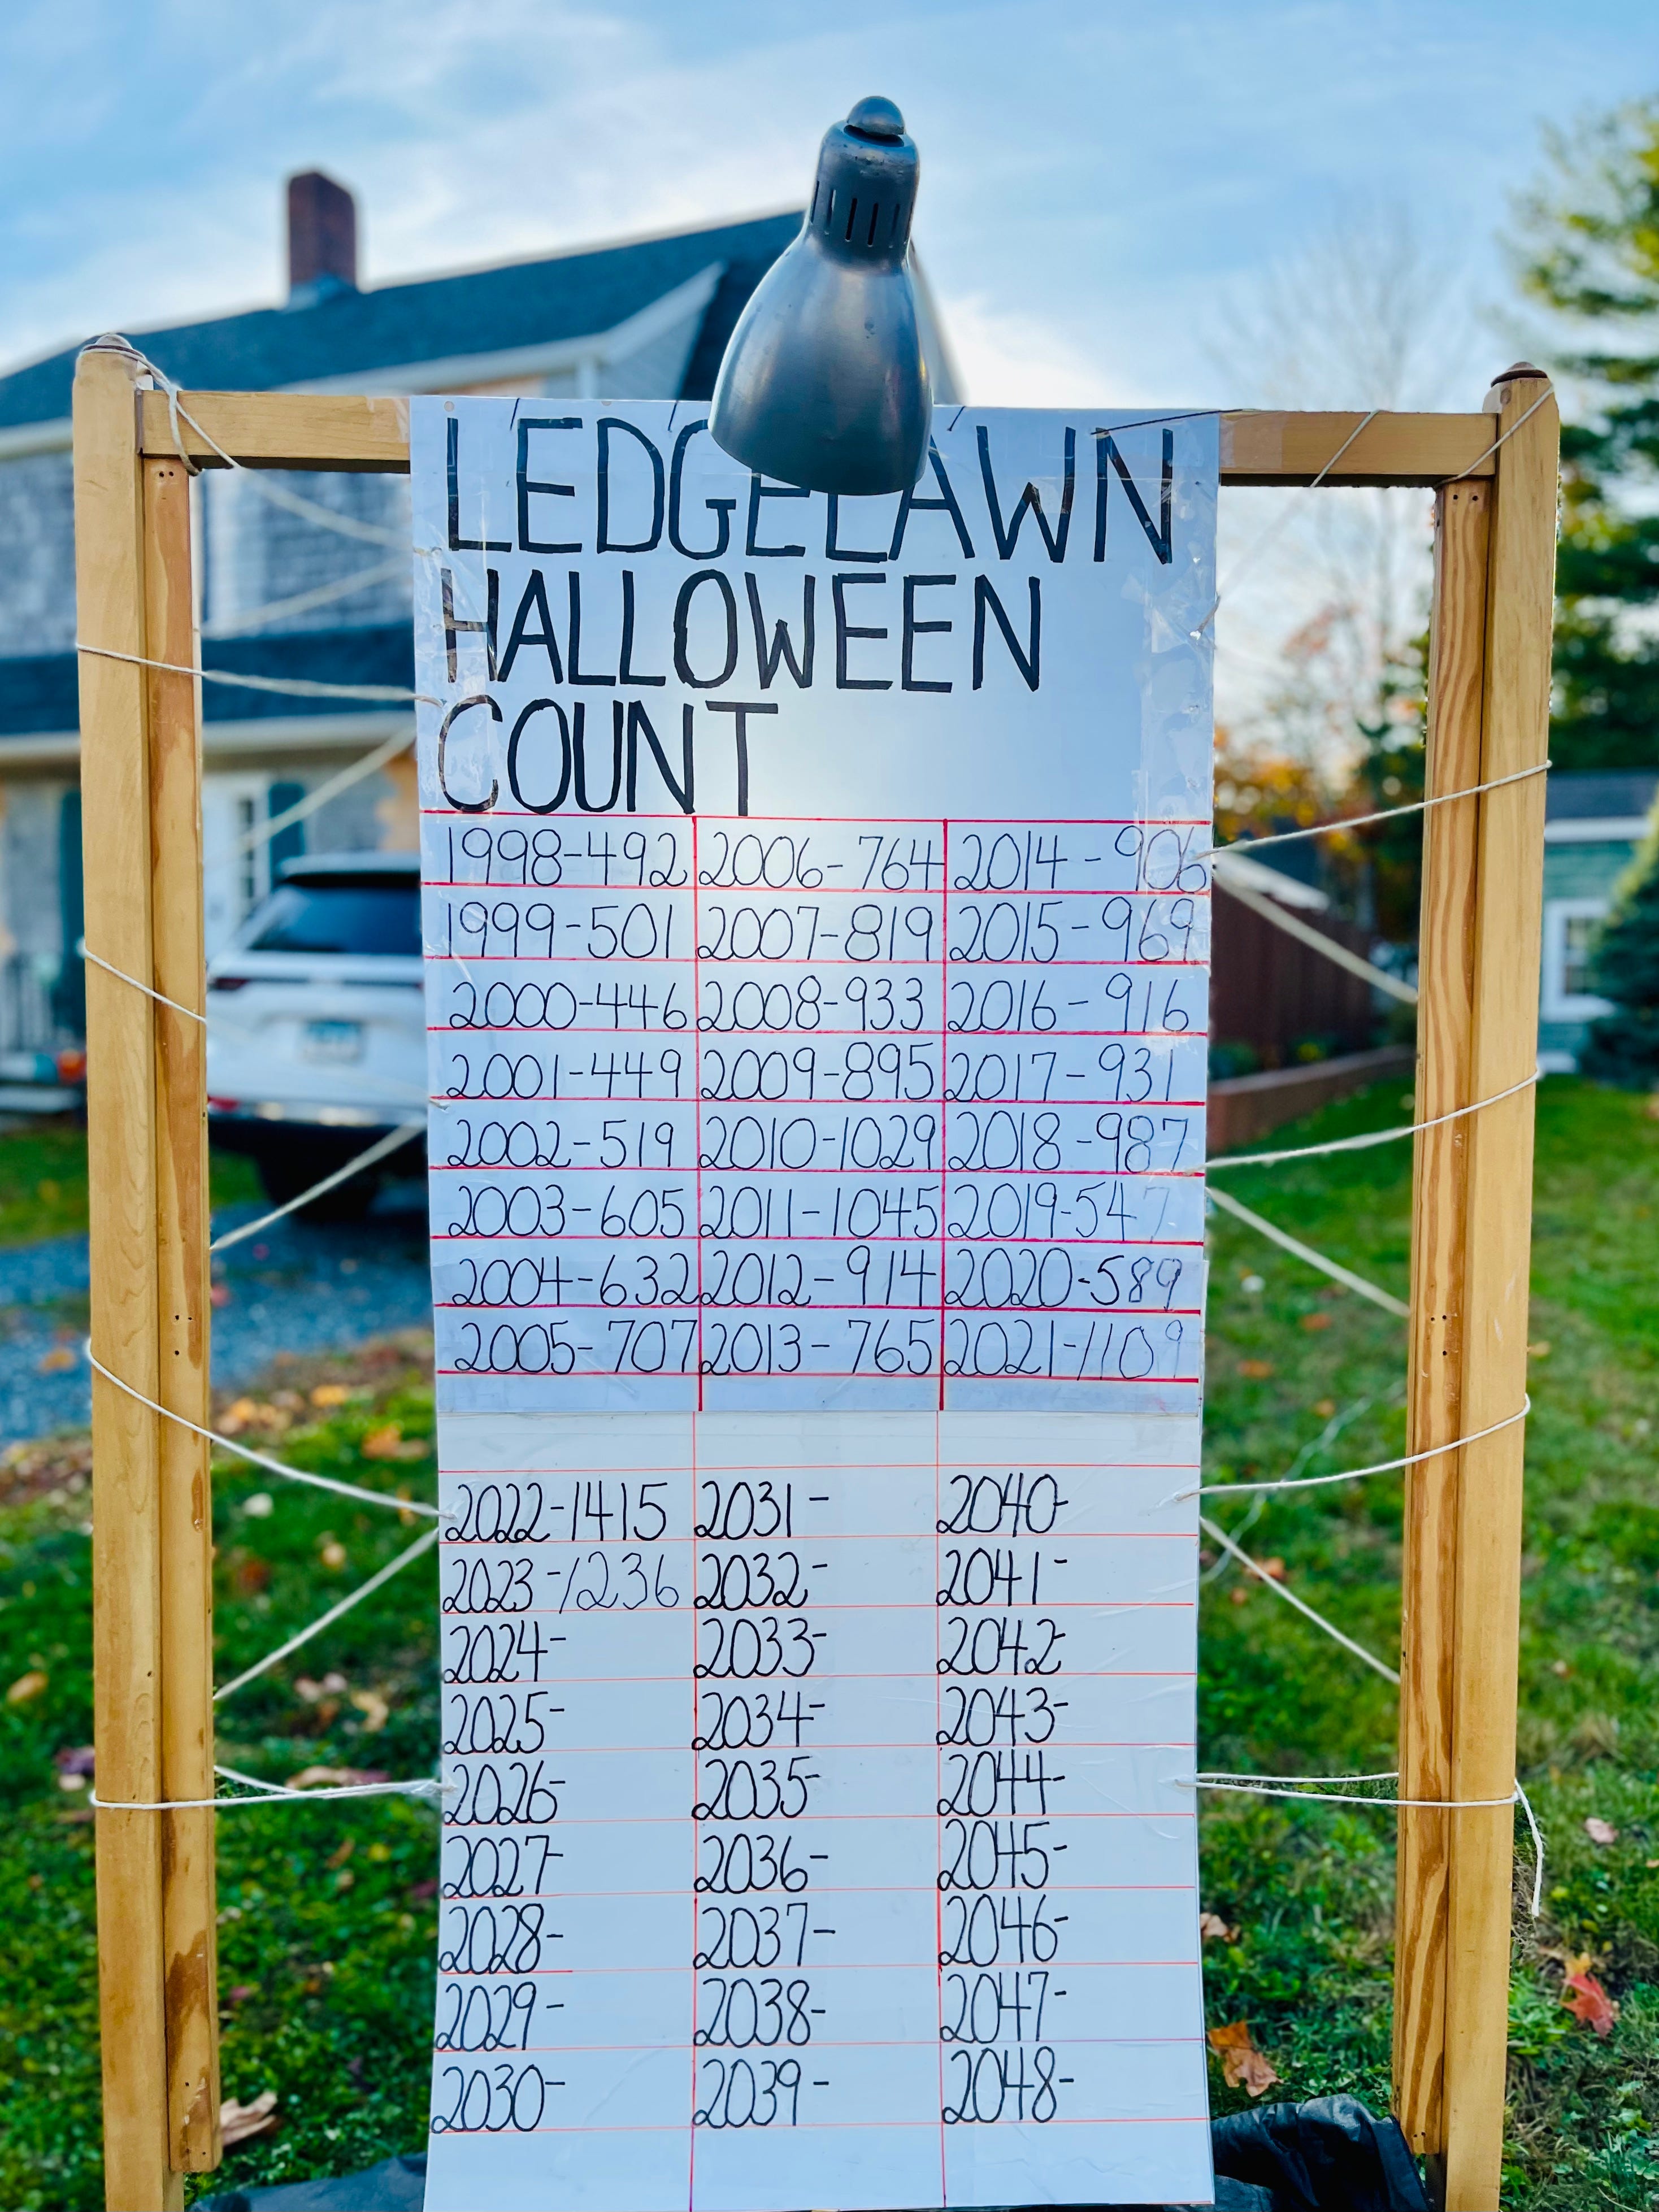 LEDGELAWN
HALLOWEEN
COUNT
1998-492 2006-764 2014-906
1999-501 2007-819 2015-969
2000-446 2008-933 2016-916
2001-449 2009-895 2017-931
2002-519 2010-1029 2018-987
2003-605 2011-1045 2019-547
2004-632 2012-914 2020-589
2005-707 2013-765 2021-1109
2022-1415 2031- 2040-
2023-1236 2032- 2041-
2024- 2033- 2042-
2025- 2034- 2043-
2026- 2035- 2044-
2027- 2036- 2045-
2028- 2037- 2046-
2029- 2038- 2047-
2030- 2039- 2048-